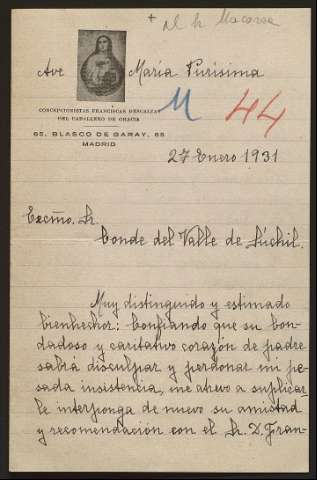 + Al Sr. Macorra
Ave María Purísima
M 44
CONCEPCIONISTAS FRANCISCAS DESCALZAS
DEL CABALLERO DE GRACIA
65, BLASCO DE GARAY, 65
MADRID
27 Enero 1931
Excmo. Sr.
Conde del Valle de Súchil.
Muy distinguido y estimado
bienhechor: Confiando que su bon-
dadoso y caritativo corazón de padre
sabrá disculpar y perdonar mi pe-
sada insistencia, me atrevo a suplicar
le interponga de nuevo su amistad
y recomendación con el Sr. D. Fran-